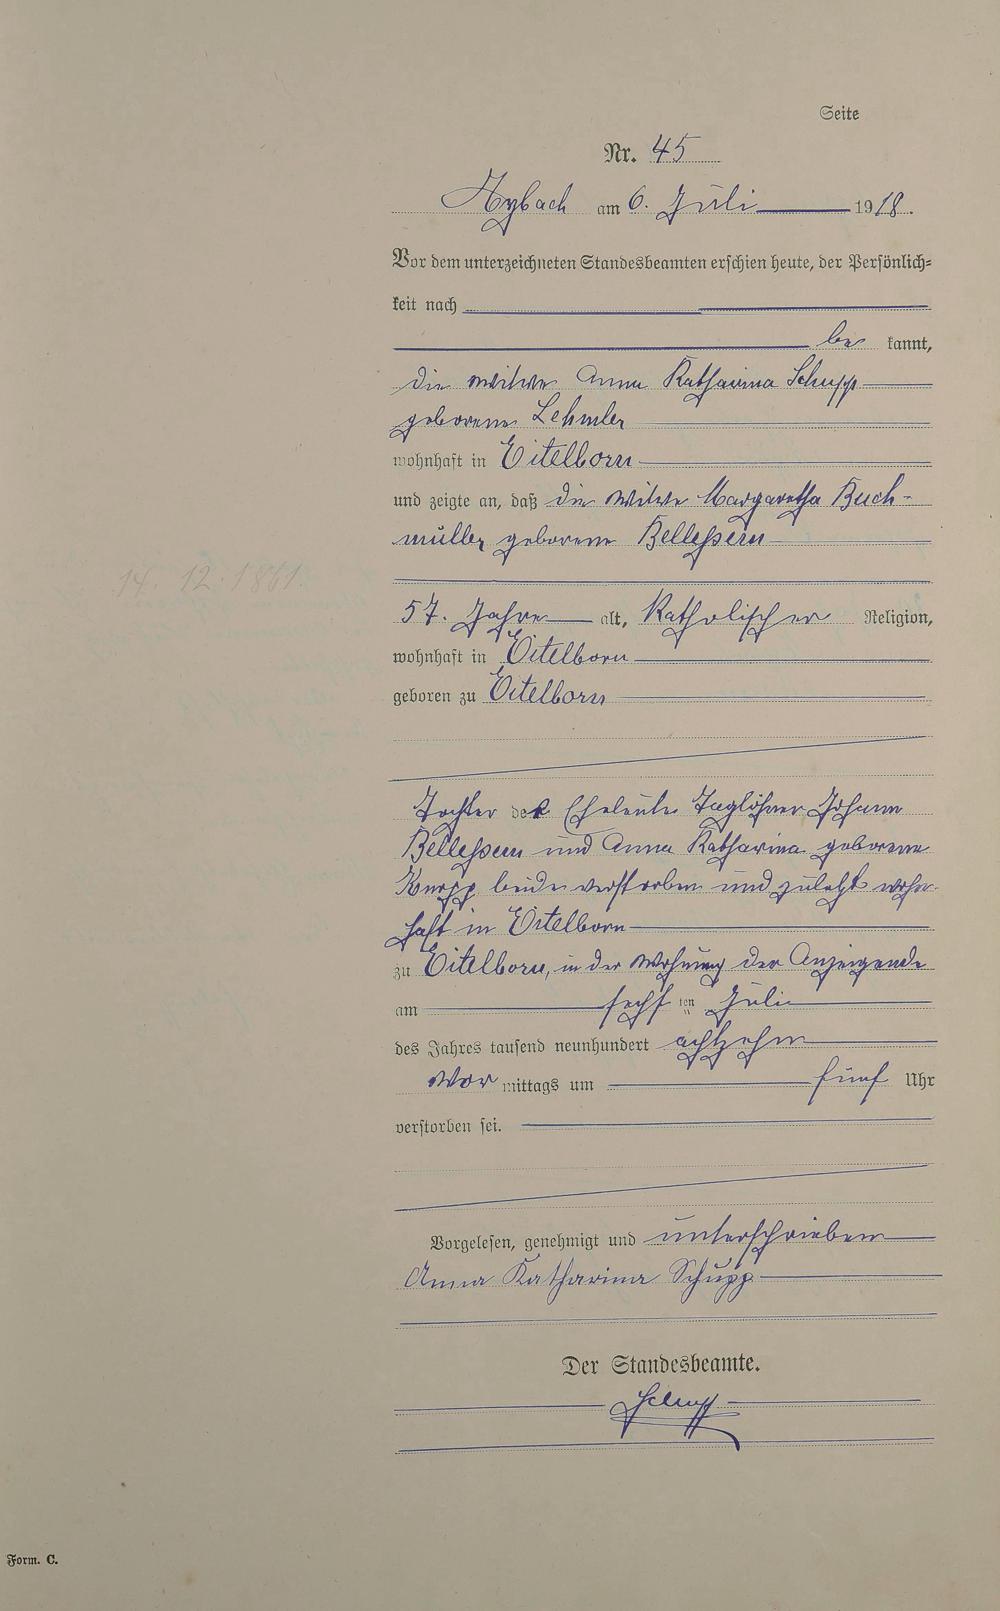 Seite
Nr. 45
Arzbach am 6. Juli 1918.
Vor dem unterzeichneten Standesbeamten erschien heute, der Persönlich=
keit nach
be kannt,
die Witwe Anna Katharina Schupp
geborene Lehmler
wohnhaft in Eitelborn
und zeigte an, daß die Witwe Margaretha Buch-
müller geborene Bellessem
14. 12. 1861.
57. Jahre alt, Katholischer Religion,
wohnhaft in Eitelborn
geboren zu Eitelborn
Tochter der Eheleute Taglöhner Johann
Bellessem und Anna Katharina geborene
Knopp beide verstorben und zuletzt wohn-
haft in Eitelborn
zu Eitelborn, in der Wohnung der Anzeigende
am sechs ten Juli
des Jahres tausend neunhundert achtzehn
Vor mittags um fünf Uhr
verstorben sei.
Vorgelesen, genehmigt und unterschrieben
Anna Katharina Schupp
Der Standesbeamte.
Schupp
Form. C.